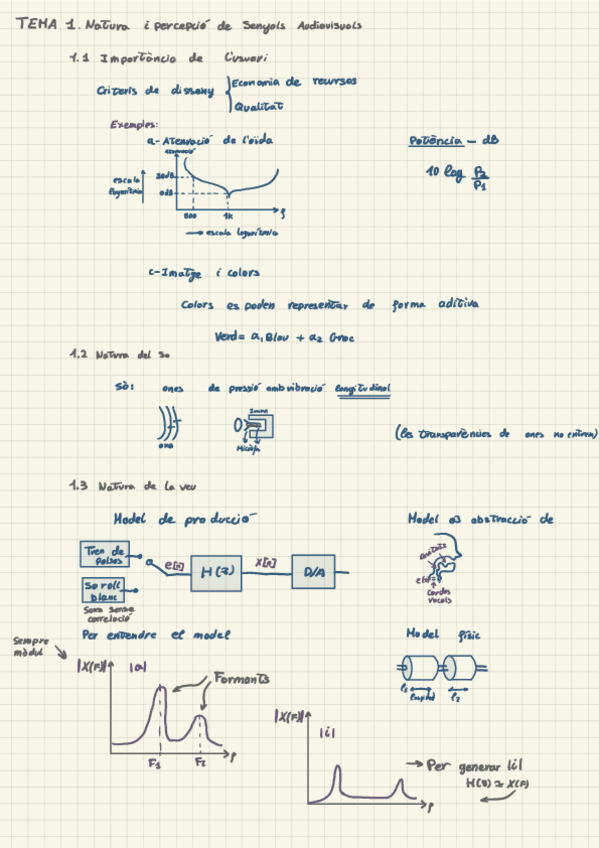 TEMA 1. Natura i percepció de Senyals Audiovisuals
1.1 Importància de l'usuari
Criteris de disseny
Economia de recursos
Qualitat
Exemples:
a- Atenuació de l'oïda
Potència – dB
10 log P2/P1
atenuació
escala
logarítmica
30dB
0dB
500 1K f
→ escala logarítmica
c- Imatge i colors
Colors es poden representar de forma aditiva
Verd = a1 Blau + a2 Groc
1.2 Natura del so
Sò: ones de pressió amb vibració longitudinal
ona
Micròfon
(les transparències de ones no entren)
1.3 Natura de la veu
Model de producció
Model abstracció de
Tren de
polsos
e[n]
H(z)
x[n]
D/A
Soroll
blanc
Sons sense
correlació
cavitats
e(n)=
Cordes
vocals
Per entendre el model
Model físic
Sempre
mòdul
|X(F)|
|a|
Formants
F1 F2 f
l1 l2
longitud
|X(F)|
|i|
→ Per generar |i|
H(z) ≃ X(F)
f